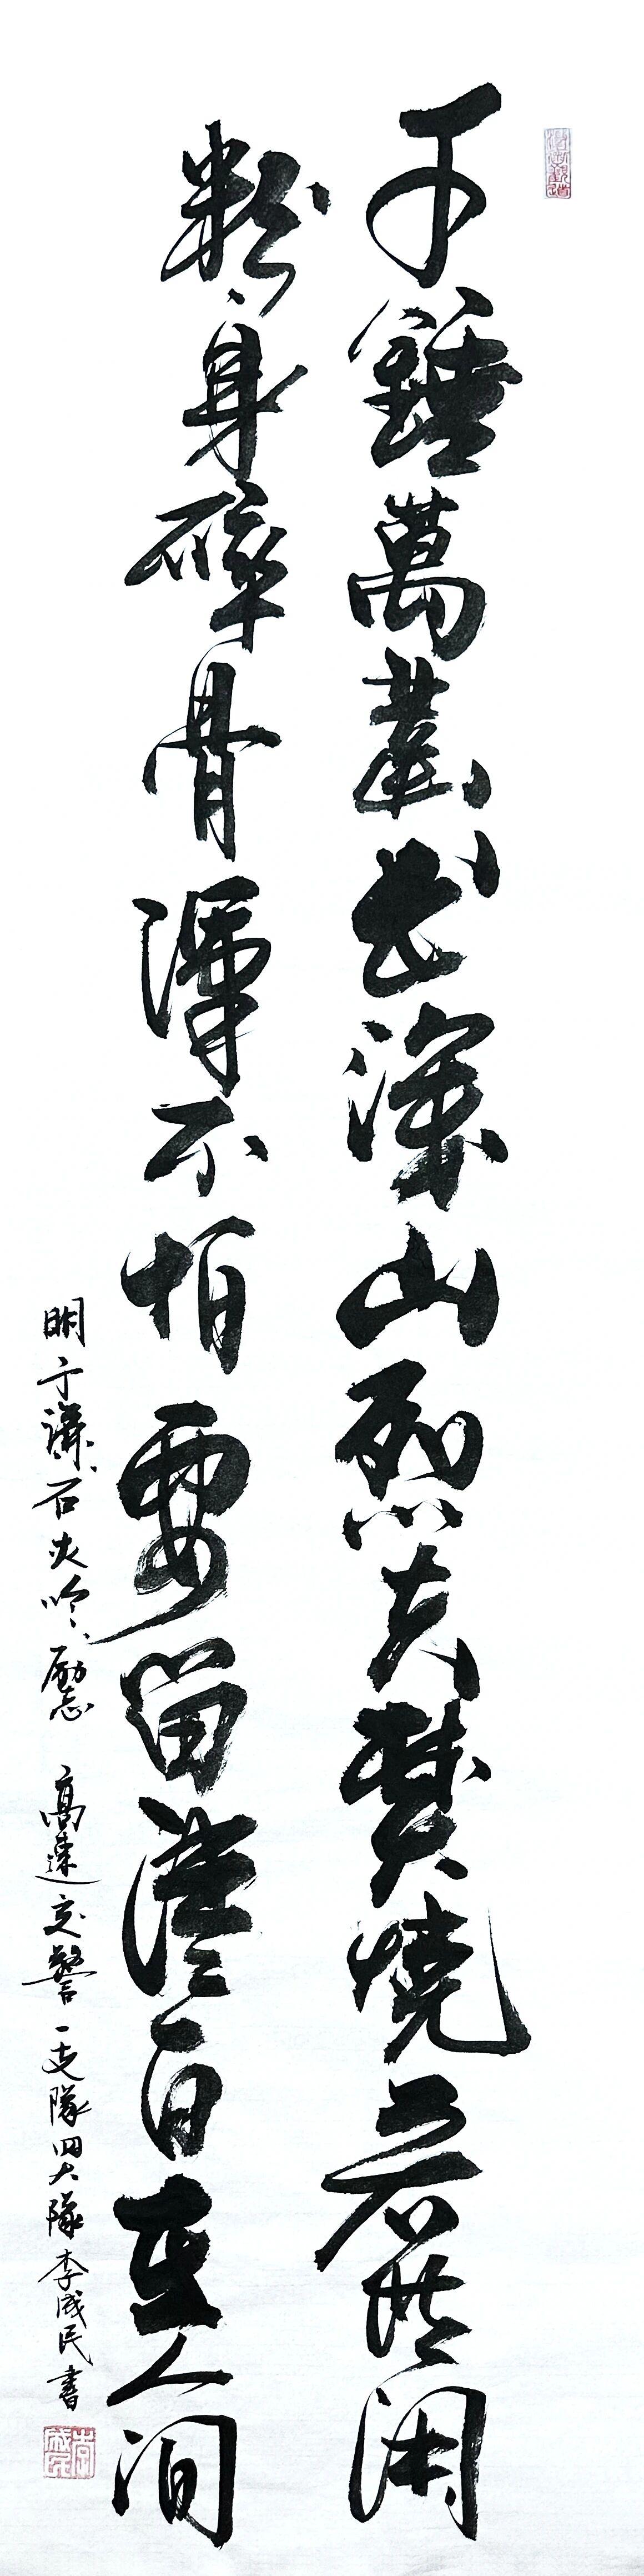 千錘萬鑿出深山烈火焚燒若等閑
粉身碎骨渾不怕要留清白在人間
明于謙石灰吟勵志 高速交警一支隊四大隊李成民書
李成民